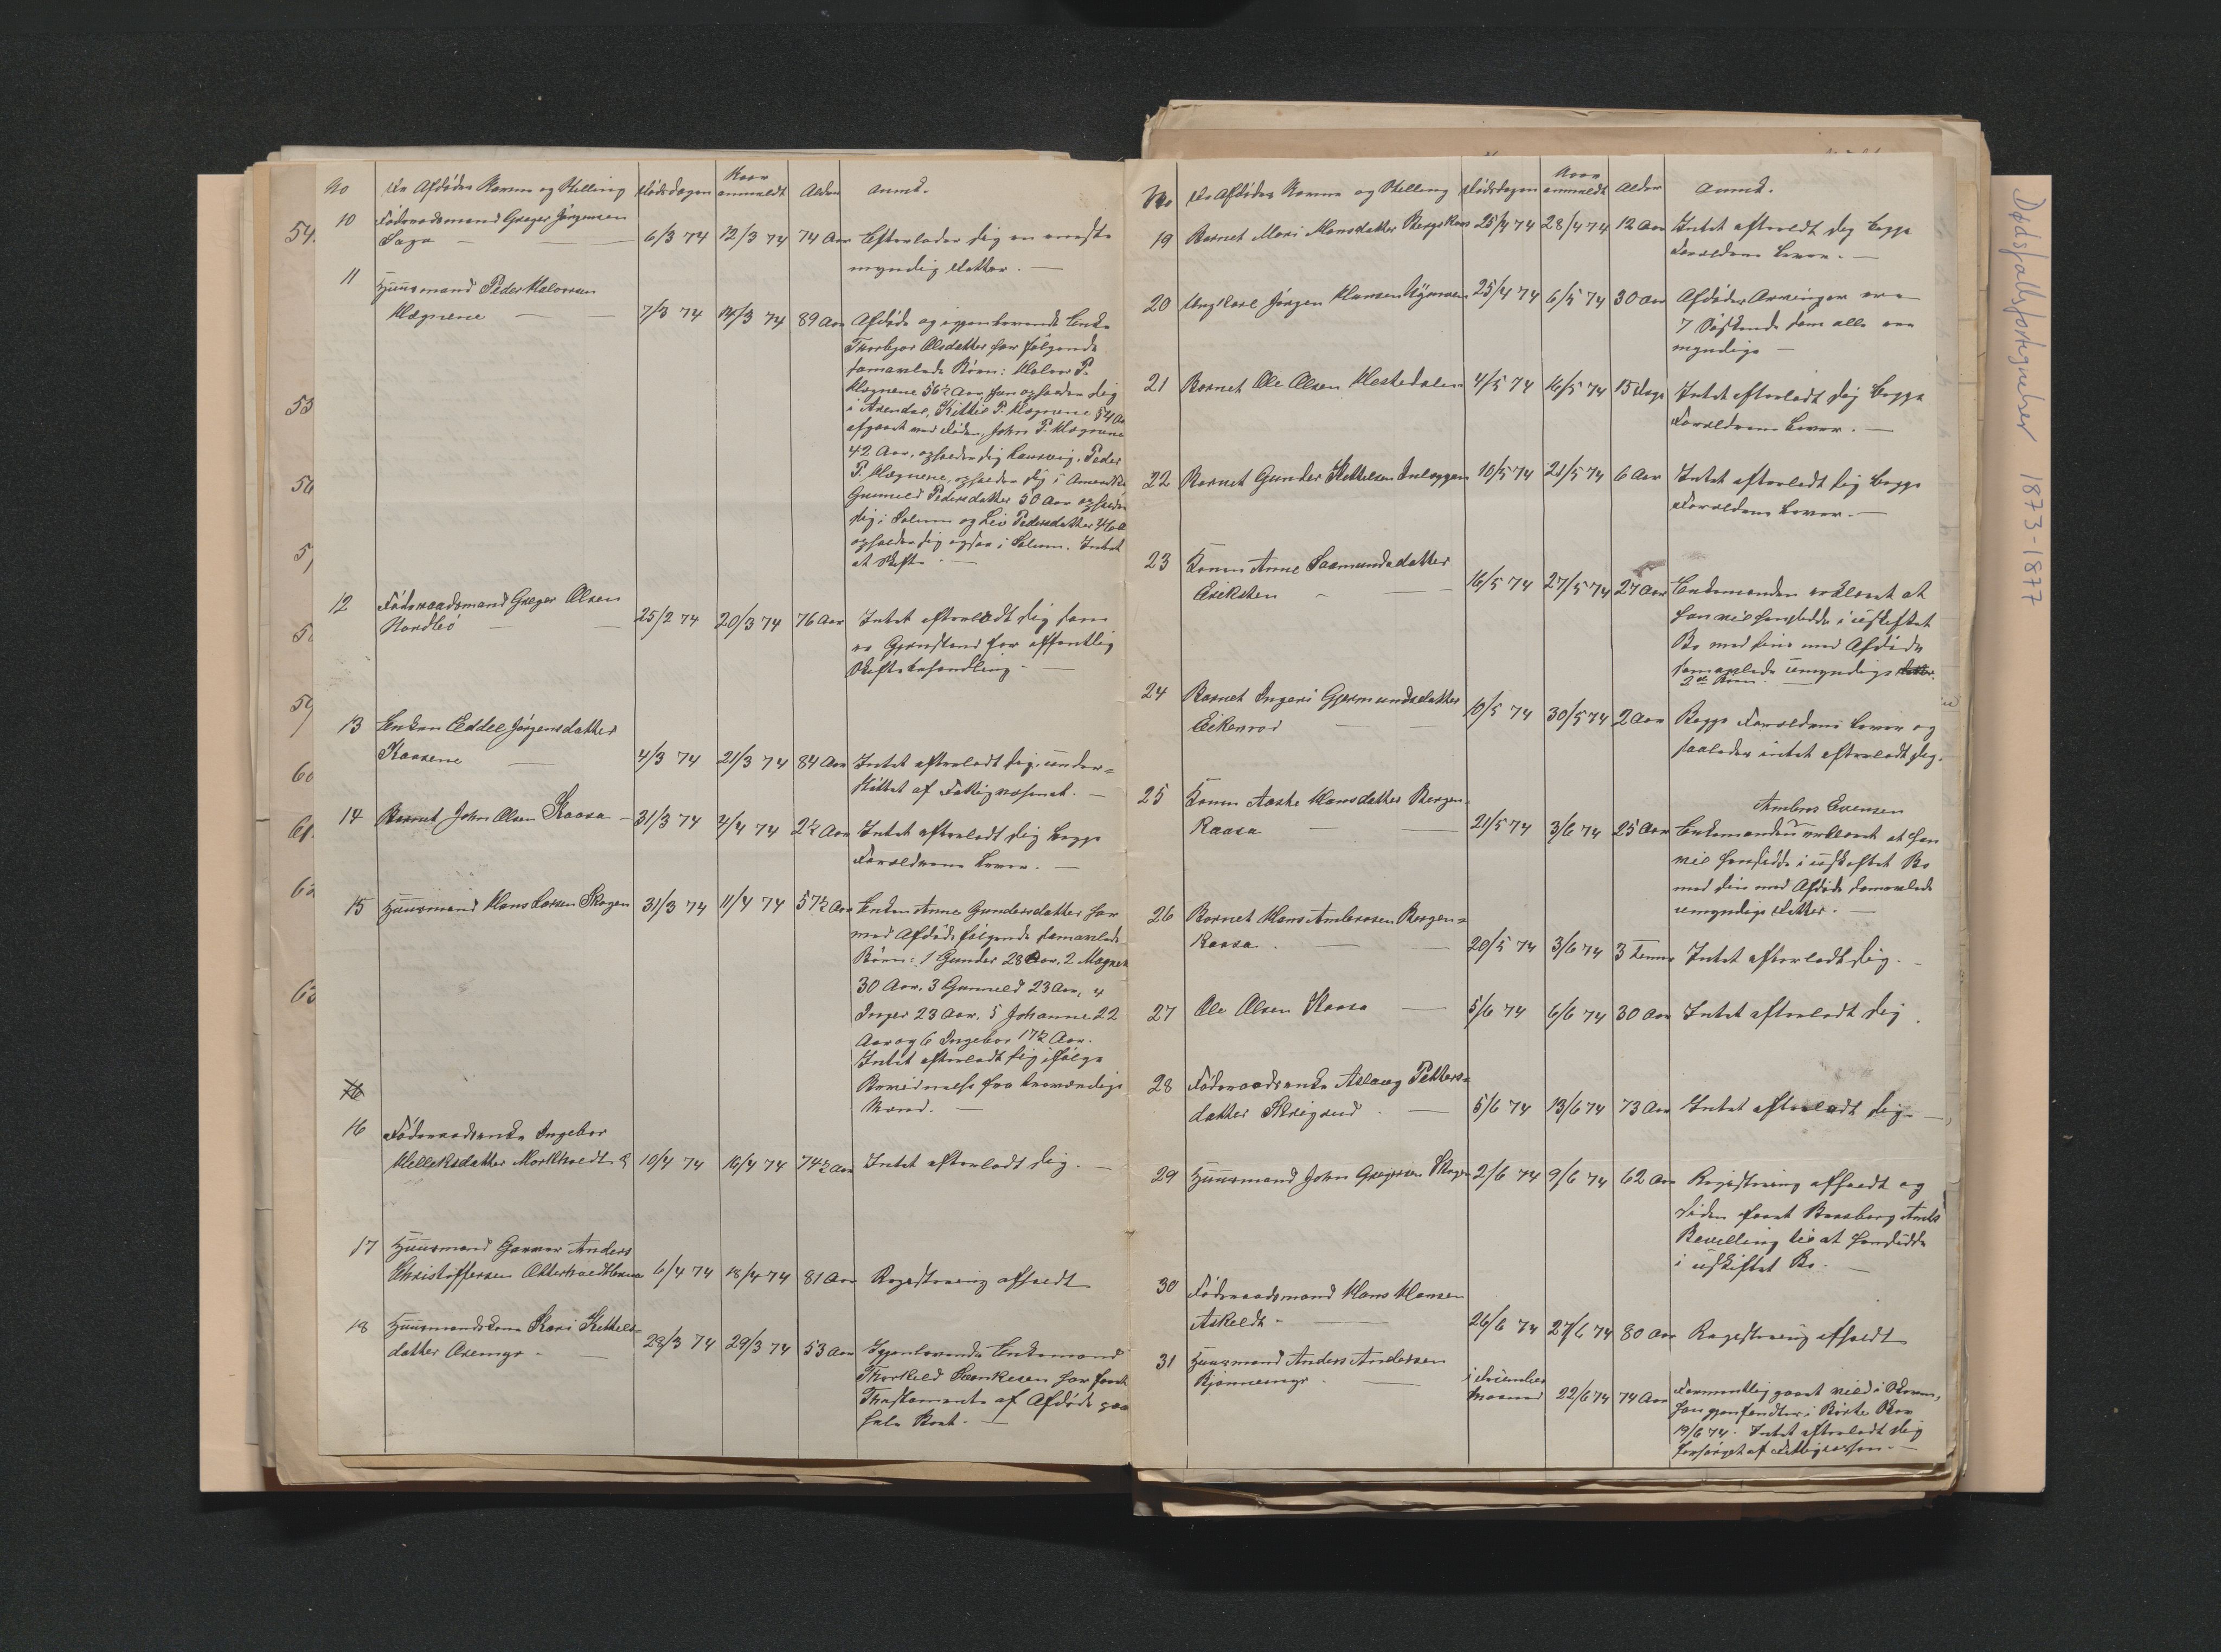 No De Afdødes Navne og Stilling Dødsdagen Naar anmeldt Alder Anmk.
10 Føderaadsmand Greger Jørgensen
Saga 6/3 74 12/3 74 74 Aar Efterlader sig en eneste
myndig Datter.
11 Huusmand Peder Halvorsen
Høgnene 7/3 74 14/3 74 89 Aar Afdøde og igjenlevende Enke
Thorbjør Olsdatter har følgende
samavlede Børn: Halvor P.
Høgnene 56½ Aar, han opholder sig
i Arendal, Kittil P. Høgnene 54 Aar
afgaaet ved Døden, John P. Høgnene
42 Aar, opholder sig Laurvig, Peder
P. Høgnene, opholder sig i Amerika
Gunnild Pedersdatter 50 Aar opholder
sig i Solum og Liv Pedersdatter 46 A
opholder sig ogsaa i Solum. Intet
at skifte.
12 Føderaadsmand Greger Olsen
Nordbø 25/2 74 20/3 74 76 Aar Intet efterladt sig som
er Gjenstand for offentlig
Skiftebehandling.
13 Enken Eddel Jørgensdatter
Kaasene 4/3 74 21/3 74 84 Aar Intet efterladt sig, under-
støttet af Fattigvæsenet.
14 Barnet John Olsen Kaasa 31/3 74 4/4 74 2½ Aar Intet efterladt sig begge
Forældrene lever.
15 Huusmand Hans Larsen Skogen 31/3 74 11/4 74 57½ Aar Enken Anne Gundersdatter har
med Afdøde følgende samavlede
Børn: 1 Gunder 28 Aar, 2 Magnild
30 Aar, 3 Gunneld 23 Aar, 4
Inger 23 Aar, 5 Johanne 22
Aar og 6 Ingebor 17½ Aar.
Intet efterladt sig ifølge
Bevidnelse fra troværdige
Mænd.
16
16 Føderaadsenke Ingebor
Helleksdatter Morkholdt 10/4 74 16/4 74 74½ Aar Intet efterladt sig.
17 Huusmand Garver Anders
Christoffersen 6/4 74 18/4 74 81 Aar Registrering afholdt
18 Huusmandskone Kari Kittels-
datter Oremyr 23/3 74 29/3 74 53 Aar Igjenlevende Enkemand
Thorkild har faaet
Thestamente af Afdøde paa
hele Boet.
54.
55
56
57
58
59
60
61.
62
63
No De Afdødes Navne og Stilling Dødsdagen Naar anmeldt Alder Anmk.
19 Barnet Mari Hansdatter Bergskaas 25/4 74 28/4 74 12 Aar Intet efterladt sig begge
Forældrene lever.
20 Ungkarl Jørgen Hansen 25/4 74 6/5 74 30 Aar Afdødes Arvinger ere
7 Søskende som alle ere
myndige
21 Barnet Ole Olsen Hestedalen 4/5 74 16/5 74 15 Dage Intet efterladt sig begge
Forældrene lever.
22 Barnet Gunder Kittelsen Inleggen 10/5 74 21/5 74 6 Aar Intet efterladt sig begge
Forældrene lever.
23 Konen Anne Saamundsdatter
Eriksten 16/5 74 27/5 74 27 Aar Enkemanden erklæret at
han vil hensidde i uskiftet
Bo med sine med Afdøde
samavlede umyndige
2de Børn.
24 Barnet Ingeri Gjermundsdatter
Eikerød 10/5 74 30/5 74 2 Aar Begge Forældrene lever og
saaledes intet efterladt sig.
25 Konen Aaste Hansdatter Bergen-
Kaasa 21/5 74 3/6 74 25 Aar Ambros Evensen
Enkemanden erklæret at han
vil hensidde i uskiftet Bo
med sin med Afdøde samavlede
umyndige Datter.
26 Barnet Hans Ambrosen Bergen-
kaasa 20/5 74 3/6 74 3 Timer Intet efterladt sig.
27 Ole Olsen Kaasa 5/6 74 6/6 74 30 Aar Intet efterladt sig.
28 Føderaadsenke Aslaug Petters-
datter 5/6 74 13/6 74 73 Aar Intet efterladt sig.
29 Huusmand John Gregersen Skogen 2/6 74 9/6 74 62 Aar Registrering afholdt og
siden faaet Bratsberg Amts
Bevilling til at hensidde
i uskiftet Bo.
30 Føderaadsmand Hans Hansen
Askeldt 26/6 74 27/6 74 80 Aar Registrering afholdt
31 Huusmand Anders Andersen
Bjønnemyr i December Maaned 22/6 74 74 Aar Formentlig gaaet vild i Skoven,
han gjenfandtes i Børte Skov
19/6 74. Intet efterladt sig
forsørget af Fattigkassen.
Dødsfallsfortegnelser 1873-1877